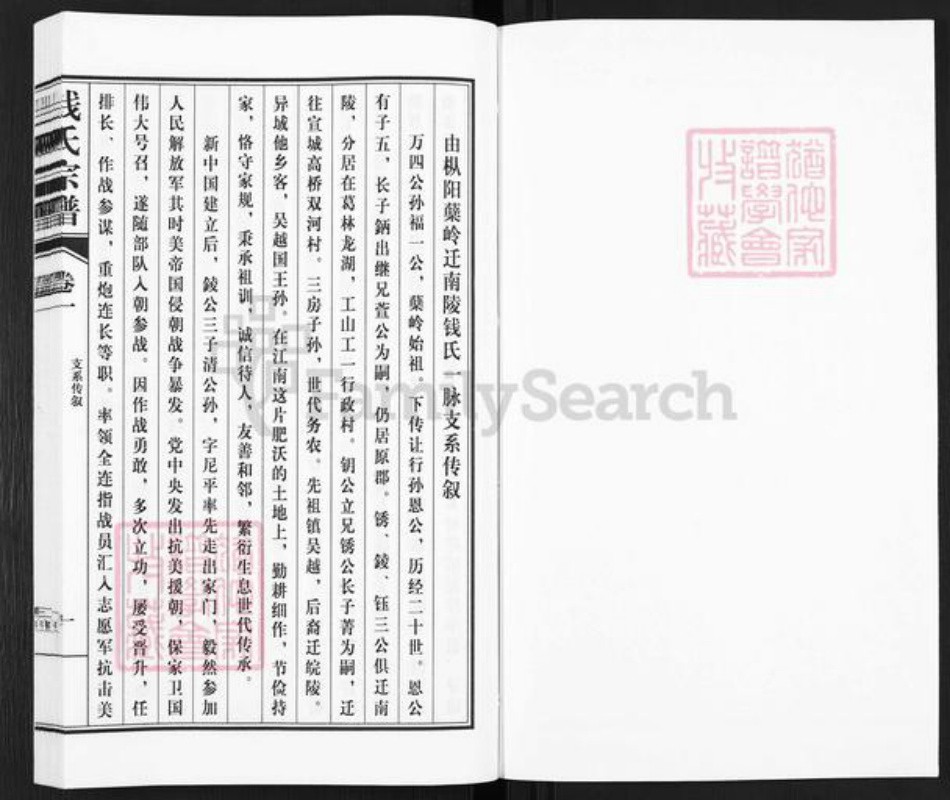 由枞阳蘖岭迁南陵钱氏一脉支系传叙
万四公孙福一公，蘖岭始祖。下传让行孙恩公，历经二十世。恩公
有子五，长子鈵出继兄萱公为嗣，仍居原郡。锈、錂、钰三公俱迁南
陵，分居在葛林龙湖，工山工一行政村。钥公立兄锈公长子菁为嗣，迁
往宣城高桥双河村。三房子孙，世代务农。先祖镇吴越，后裔迁皖陵。
异域他乡客，吴越国王孙。在江南这片肥沃的土地上，勤耕细作，节俭持
家，恪守家规，秉承祖训，诚信待人，友善和邻，繁衍生息世代传承。
新中国建立后，錂公三子清公孙，字尼平率先走出家门，毅然参加
人民解放军其时美帝国侵朝战争暴发。党中央发出抗美援朝，保家卫国
伟大号召，遂随部队入朝参战。因作战勇敢，多次立功，屡受晋升，任
排长、作战参谋，重炮连长等职。率领全连指战员汇入志愿军抗击美
钱氏宗谱
卷一
支系传叙
一
FamilySearch